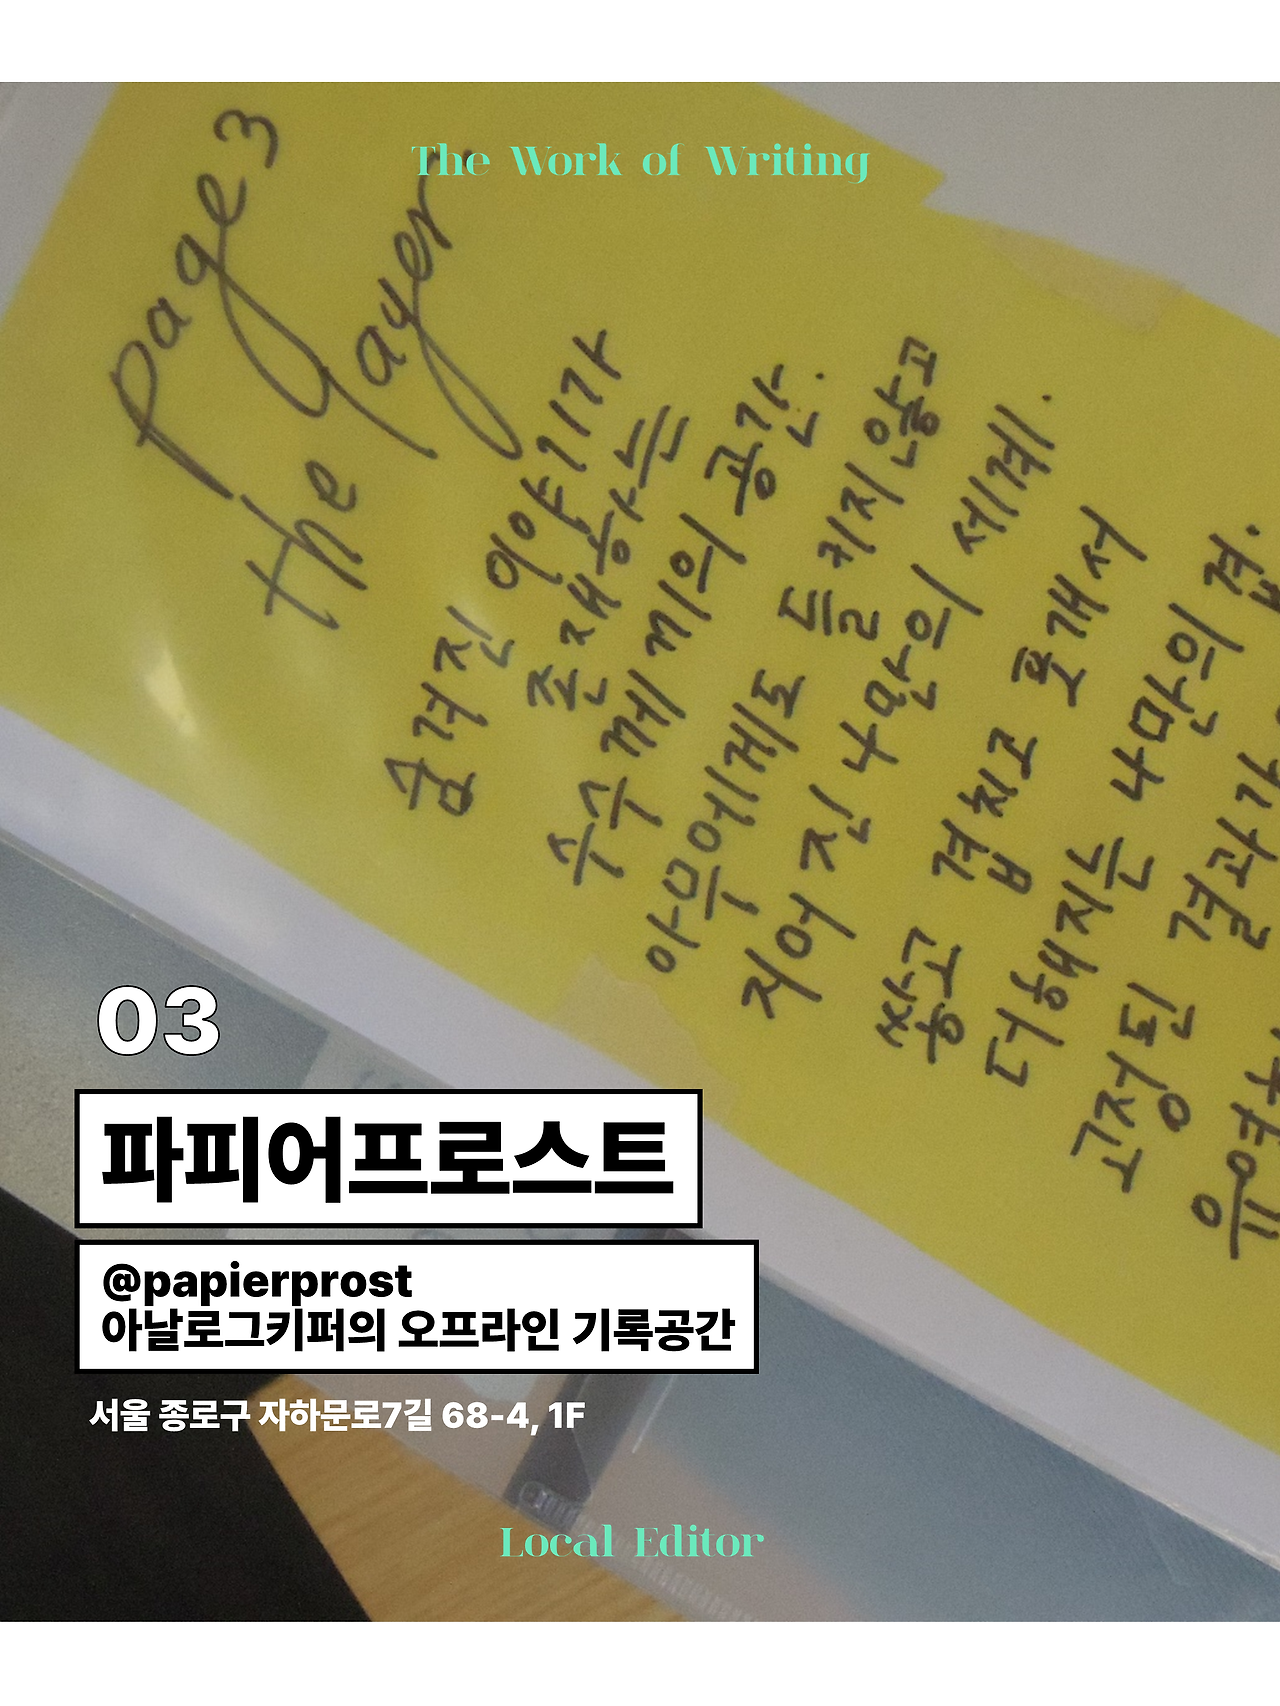 The Work of Writing
Page 3
the layer
숨겨진 이야기가
존재하는
수수께끼의 공간.
아무에게도 들키지 않고
지어진 나만의 세계.
쌓고 겹치고 포개서
더해지는 나만의 겹.
고정된 결과가
03
파피어프로스트
@papierprost
아날로그키퍼의 오프라인 기록공간
서울 종로구 자하문로7길 68-4, 1F
Local Editor